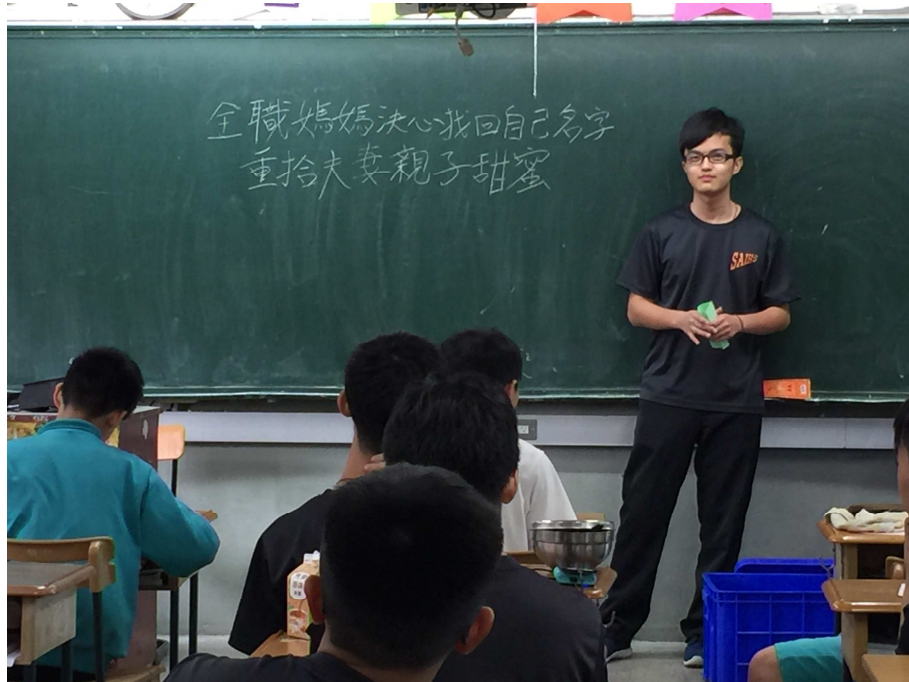 全職媽媽決心找回自己名字
重拾夫妻親子甜蜜
SAIHS